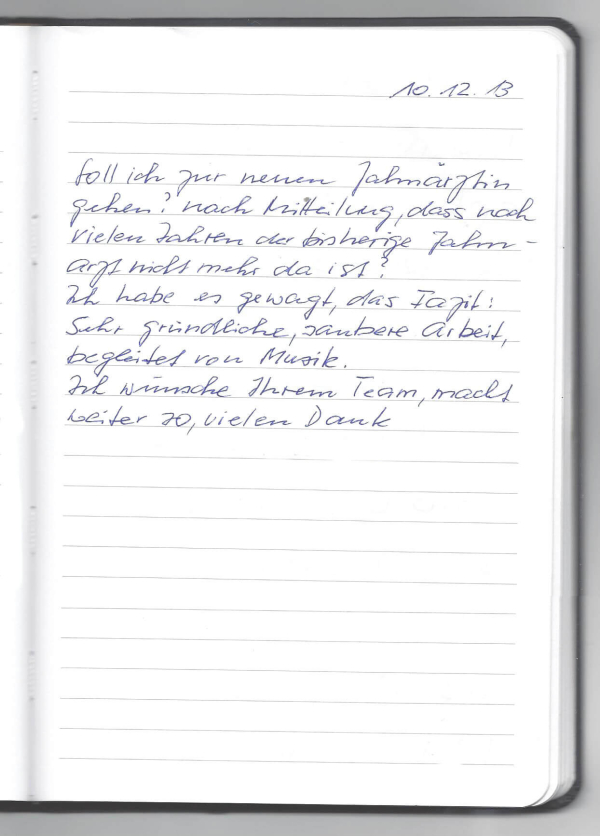 10.12.13
Soll ich zur neuen Zahnärztin
gehen? nach Mitteilung, dass nach
vielen Jahren der bisherige Zahn-
arzt nicht mehr da ist?
Ich habe es gewagt, das Fazit:
Sehr gründliche, saubere Arbeit,
begleitet von Musik.
Ich wünsche Ihrem Team, macht
weiter so, vielen Dank